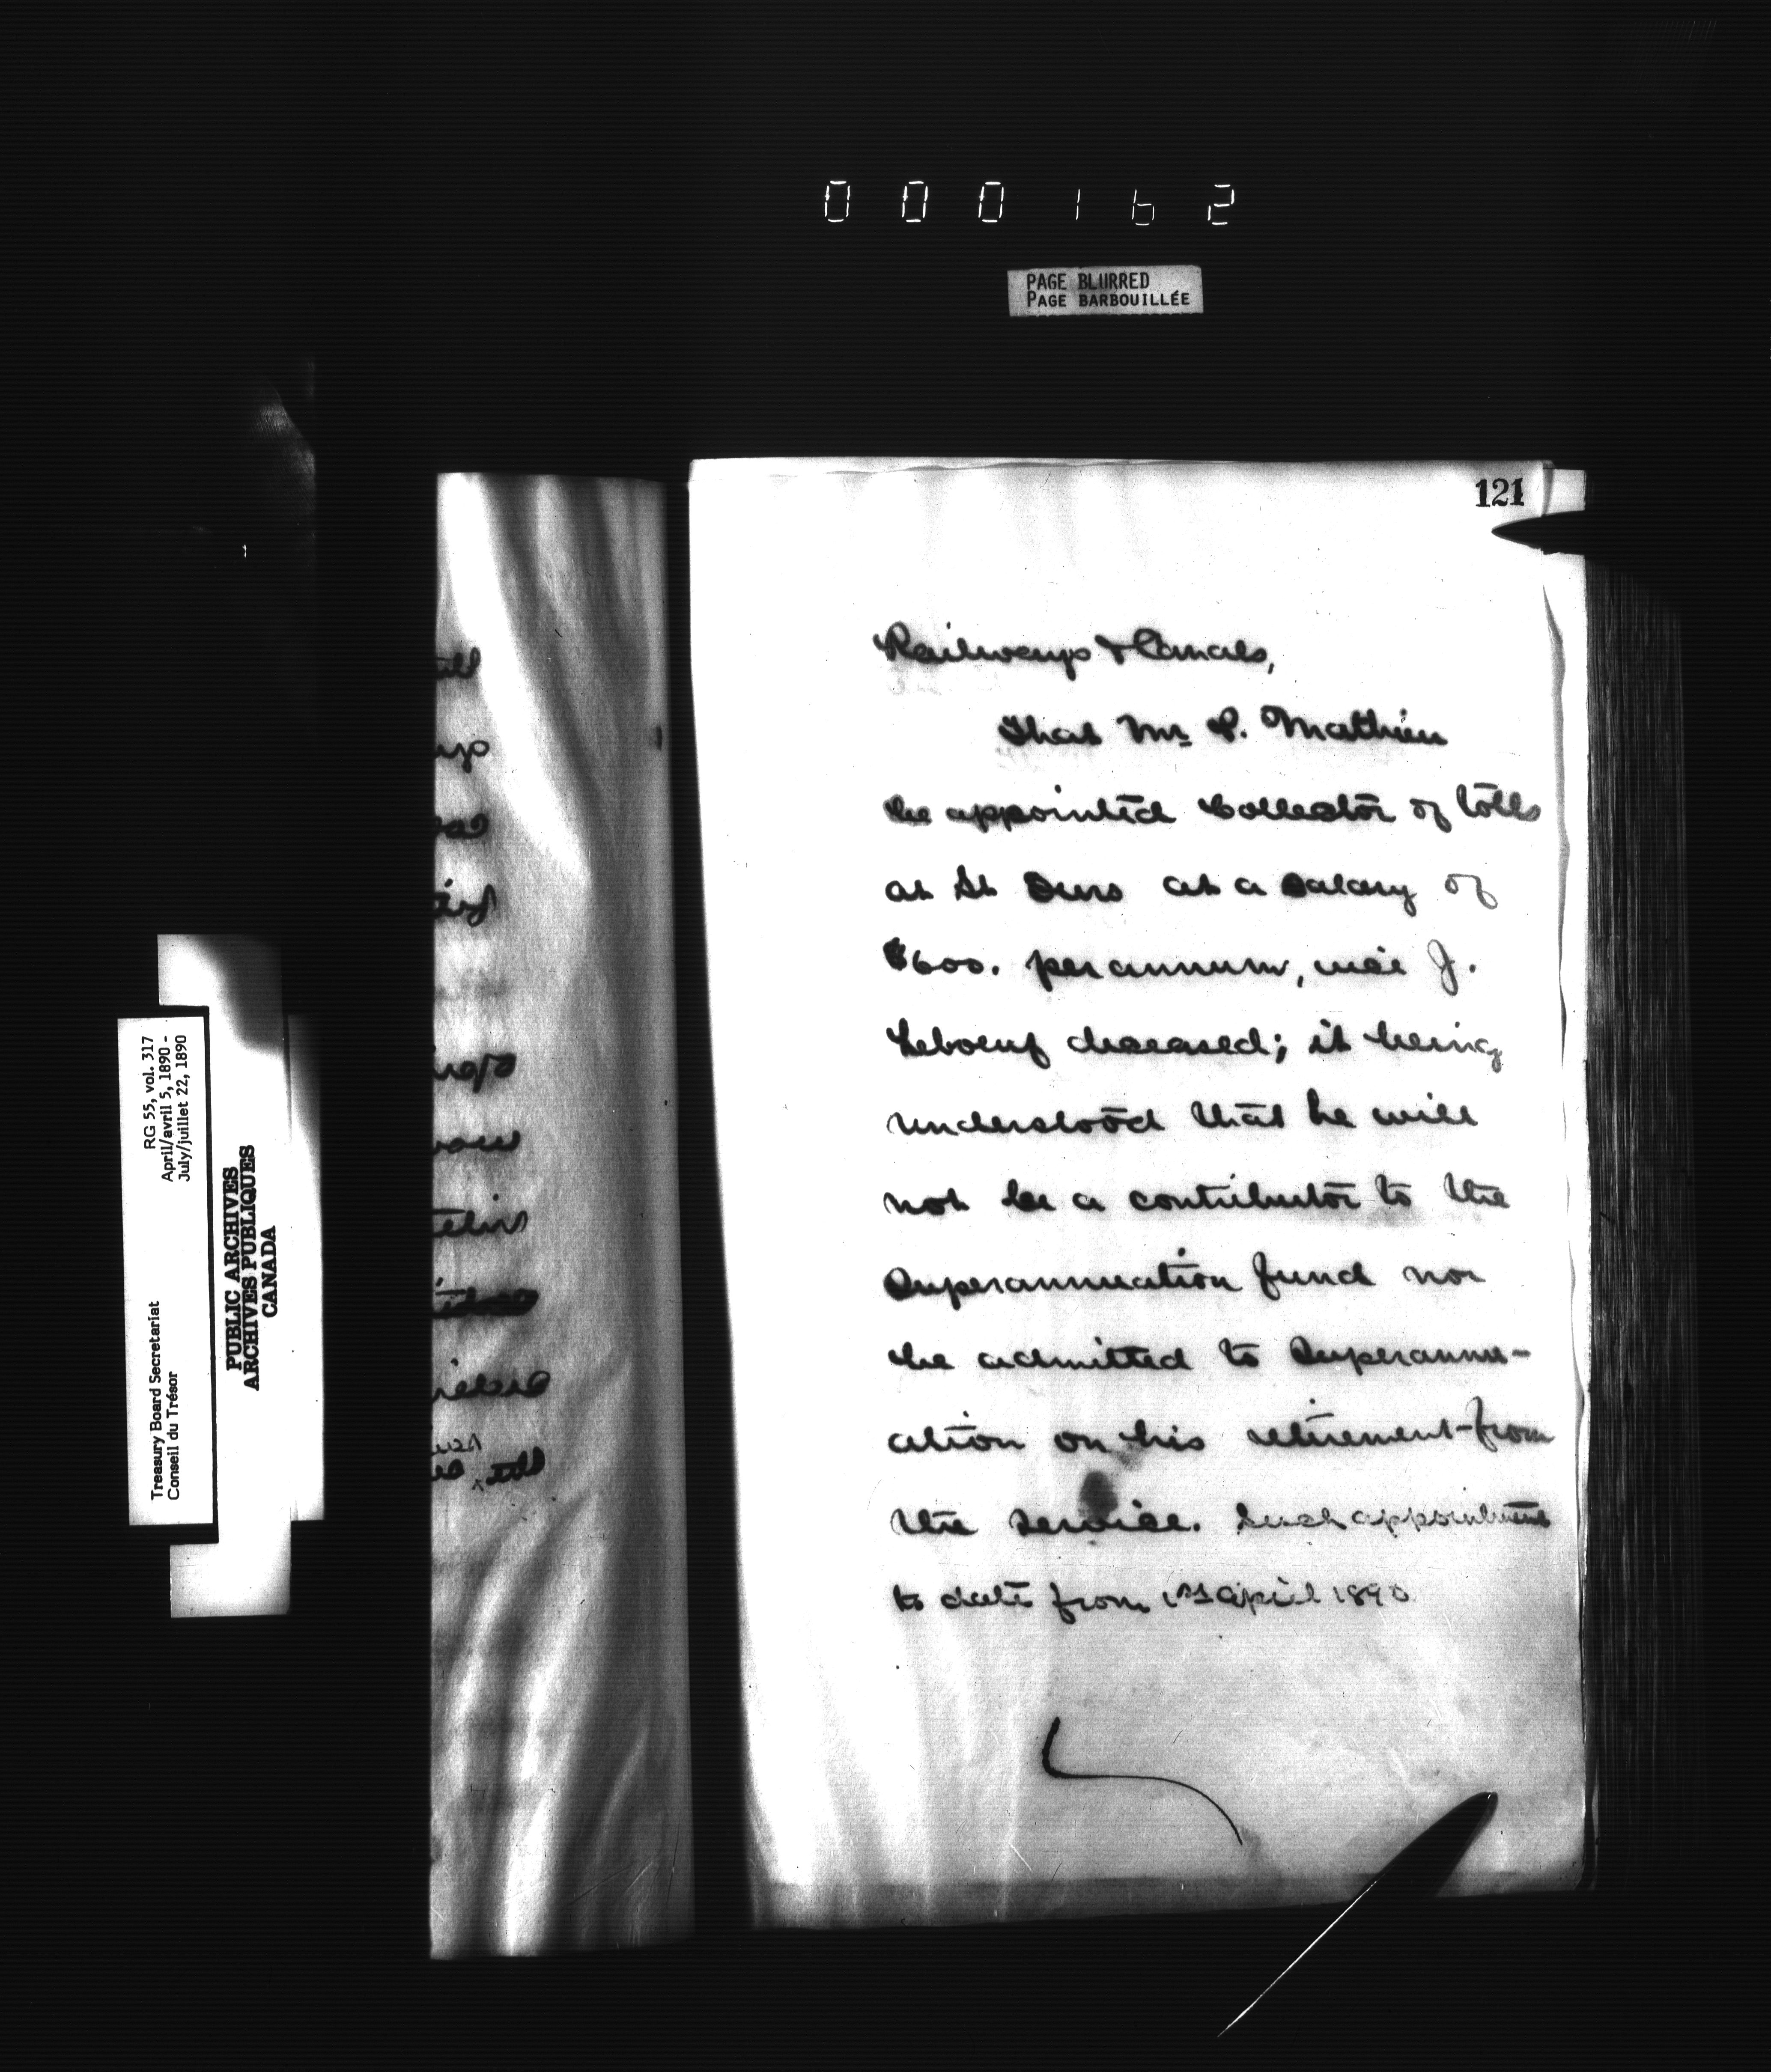 000162
PAGE BLURRED
PAGE BARBOUILLÉE
121
Railways & Canals,
That Mr P. Mathieu
be appointed Collector of tolls
at St Ours at a salary of
$600. per annum, vice J.
Leboeuf deceased; it being
understood that he will
not be a contributor to the
Superannuation fund nor
be admitted to Superannu-
ation on his retirement from
the service. Such appointment
to date from 1st April 1890
RG 55, vol. 317
April/avril 5, 1890 -
July/juillet 22, 1890
Treasury Board Secretariat
Conseil du Trésor
PUBLIC ARCHIVES
ARCHIVES PUBLIQUES
CANADA